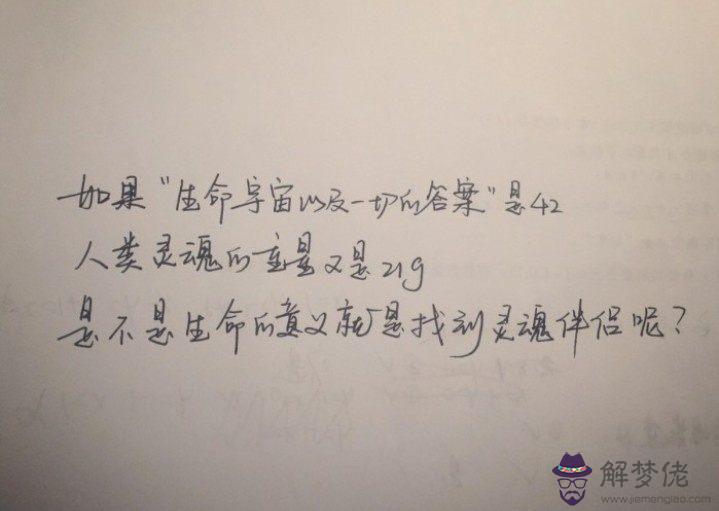 如果“生命宇宙以及一切的答案”是42
人类灵魂的重量又是21g
是不是生命的意义就是找到灵魂伴侣呢？
解梦佬
www.jiemenglao.com